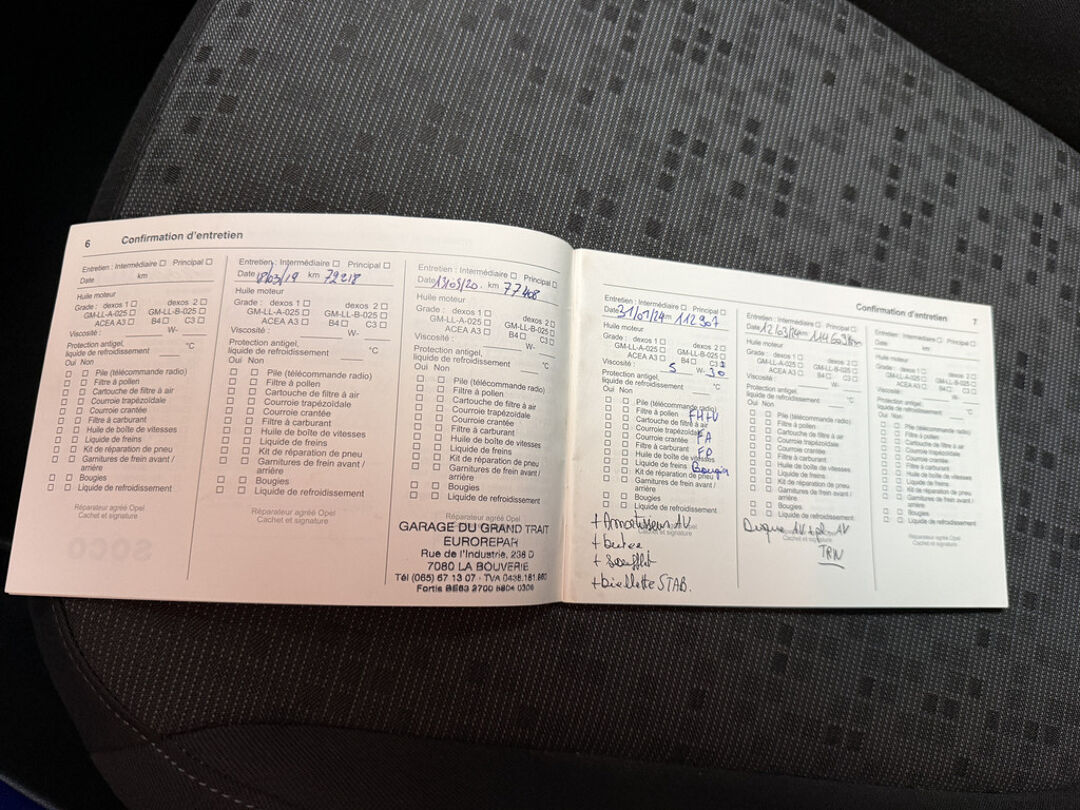 6 Confirmation d'entretien
Entretien : Intermédiaire ☐ Principal ☐
Date km
Huile moteur
Grade : dexos 1 ☐ dexos 2 ☐
GM-LL-A-025 ☐ GM-LL-B-025 ☐
ACEA A3 ☐ B4 ☐ C3 ☐
Viscosité : W-
Protection antigel,
liquide de refroidissement °C
Oui Non
☐ ☐ Pile (télécommande radio)
☐ ☐ Filtre à pollen
☐ ☐ Cartouche de filtre à air
☐ ☐ Courroie trapézoïdale
☐ ☐ Courroie crantée
☐ ☐ Filtre à carburant
☐ ☐ Huile de boîte de vitesses
☐ ☐ Liquide de freins
☐ ☐ Kit de réparation de pneu
☐ ☐ Garnitures de frein avant /
arrière
☐ ☐ Bougies
☐ ☐ Liquide de refroidissement
Réparateur agréé Opel
Cachet et signature
Entretien : Intermédiaire ☐ Principal ☐
Date 18/03/19 km 72218
Huile moteur
Grade : dexos 1 ☐ dexos 2 ☐
GM-LL-A-025 ☐ GM-LL-B-025 ☐
ACEA A3 ☐ B4 ☐ C3 ☐
Viscosité : W-
Protection antigel,
liquide de refroidissement °C
Oui Non
☐ ☐ Pile (télécommande radio)
☐ ☐ Filtre à pollen
☐ ☐ Cartouche de filtre à air
☐ ☐ Courroie trapézoïdale
☐ ☐ Courroie crantée
☐ ☐ Filtre à carburant
☐ ☐ Huile de boîte de vitesses
☐ ☐ Liquide de freins
☐ ☐ Kit de réparation de pneu
☐ ☐ Garnitures de frein avant /
arrière
☐ ☐ Bougies
☐ ☐ Liquide de refroidissement
Réparateur agréé Opel
Cachet et signature
Entretien : Intermédiaire ☐ Principal ☐
Date km 77408
Huile moteur
Grade : dexos 1 ☐ dexos 2 ☐
GM-LL-A-025 ☐ GM-LL-B-025 ☐
ACEA A3 ☐ B4 ☐ C3 ☐
Viscosité : W-
Protection antigel,
liquide de refroidissement °C
Oui Non
☐ ☐ Pile (télécommande radio)
☐ ☐ Filtre à pollen
☐ ☐ Cartouche de filtre à air
☐ ☐ Courroie trapézoïdale
☐ ☐ Courroie crantée
☐ ☐ Filtre à carburant
☐ ☐ Huile de boîte de vitesses
☐ ☐ Liquide de freins
☐ ☐ Kit de réparation de pneu
☐ ☐ Garnitures de frein avant /
arrière
☐ ☐ Bougies
☐ ☐ Liquide de refroidissement
Réparateur agréé Opel
Cachet et signature
GARAGE DU GRAND TRAIT
EUROREPAR
Rue de l'Industrie, 238 D
7080 LA BOUVERIE
Tél (065) 67 13 07 - TVA 0438.181.
Fortis BE63 2700
Confirmation d'entretien 7
Entretien : Intermédiaire ☐ Principal ☐
Date 31/01/24 km 112907
Huile moteur
Grade : dexos 1 ☐ dexos 2 ☐
GM-LL-A-025 ☐ GM-LL-B-025 ☐
ACEA A3 ☐ B4 ☐ C3
Viscosité : 5 W- 30
Protection antigel,
liquide de refroidissement °C
Oui Non
☐ ☐ Pile (télécommande radio)
☐ ☐ Filtre à pollen FH+V
☐ ☐ Cartouche de filtre à air
☐ ☐ Courroie trapézoïdale FA
☐ ☐ Courroie crantée
☐ ☐ Filtre à carburant FP
☐ ☐ Huile de boîte de vitesses
☐ ☐ Liquide de freins Bougies
☐ ☐ Kit de réparation de pneu
☐ ☐ Garnitures de frein avant /
arrière
☐ ☐ Bougies
☐ ☐ Liquide de refroidissement
Réparateur agréé Opel
Cachet et signature
+ Amortisseur AV
+ butée
+ soufflet
+ biellette STAB.
Entretien : Intermédiaire ☐ Principal ☐
Date 12/03/24 km 114609 km
Huile moteur
Grade : dexos 1 ☐ dexos 2 ☐
GM-LL-A-025 ☐ GM-LL-B-025 ☐
ACEA A3 ☐ B4 ☐ C3 ☐
Viscosité : W-
Protection antigel,
liquide de refroidissement °C
Oui Non
☐ ☐ Pile (télécommande radio)
☐ ☐ Filtre à pollen
☐ ☐ Cartouche de filtre à air
☐ ☐ Courroie trapézoïdale
☐ ☐ Courroie crantée
☐ ☐ Filtre à carburant
☐ ☐ Huile de boîte de vitesses
☐ ☐ Liquide de freins
☐ ☐ Kit de réparation de pneu
☐ ☐ Garnitures de frein avant /
arrière
☐ ☐ Bougies
☐ ☐ Liquide de refroidissement
Réparateur agréé Opel
Cachet et signature
Disque AV + plq AV
Entretien : Intermédiaire ☐ Principal ☐
Date km
Huile moteur
Grade : dexos 1 ☐ dexos 2 ☐
GM-LL-A-025 ☐ GM-LL-B-025 ☐
ACEA A3 ☐ B4 ☐ C3 ☐
Viscosité : W-
Protection antigel,
liquide de refroidissement °C
Oui Non
☐ ☐ Pile (télécommande radio)
☐ ☐ Filtre à pollen
☐ ☐ Cartouche de filtre à air
☐ ☐ Courroie trapézoïdale
☐ ☐ Courroie crantée
☐ ☐ Filtre à carburant
☐ ☐ Huile de boîte de vitesses
☐ ☐ Liquide de freins
☐ ☐ Kit de réparation de pneu
☐ ☐ Garnitures de frein avant /
arrière
☐ ☐ Bougies
☐ ☐ Liquide de refroidissement
Réparateur agréé Opel
Cachet et signature